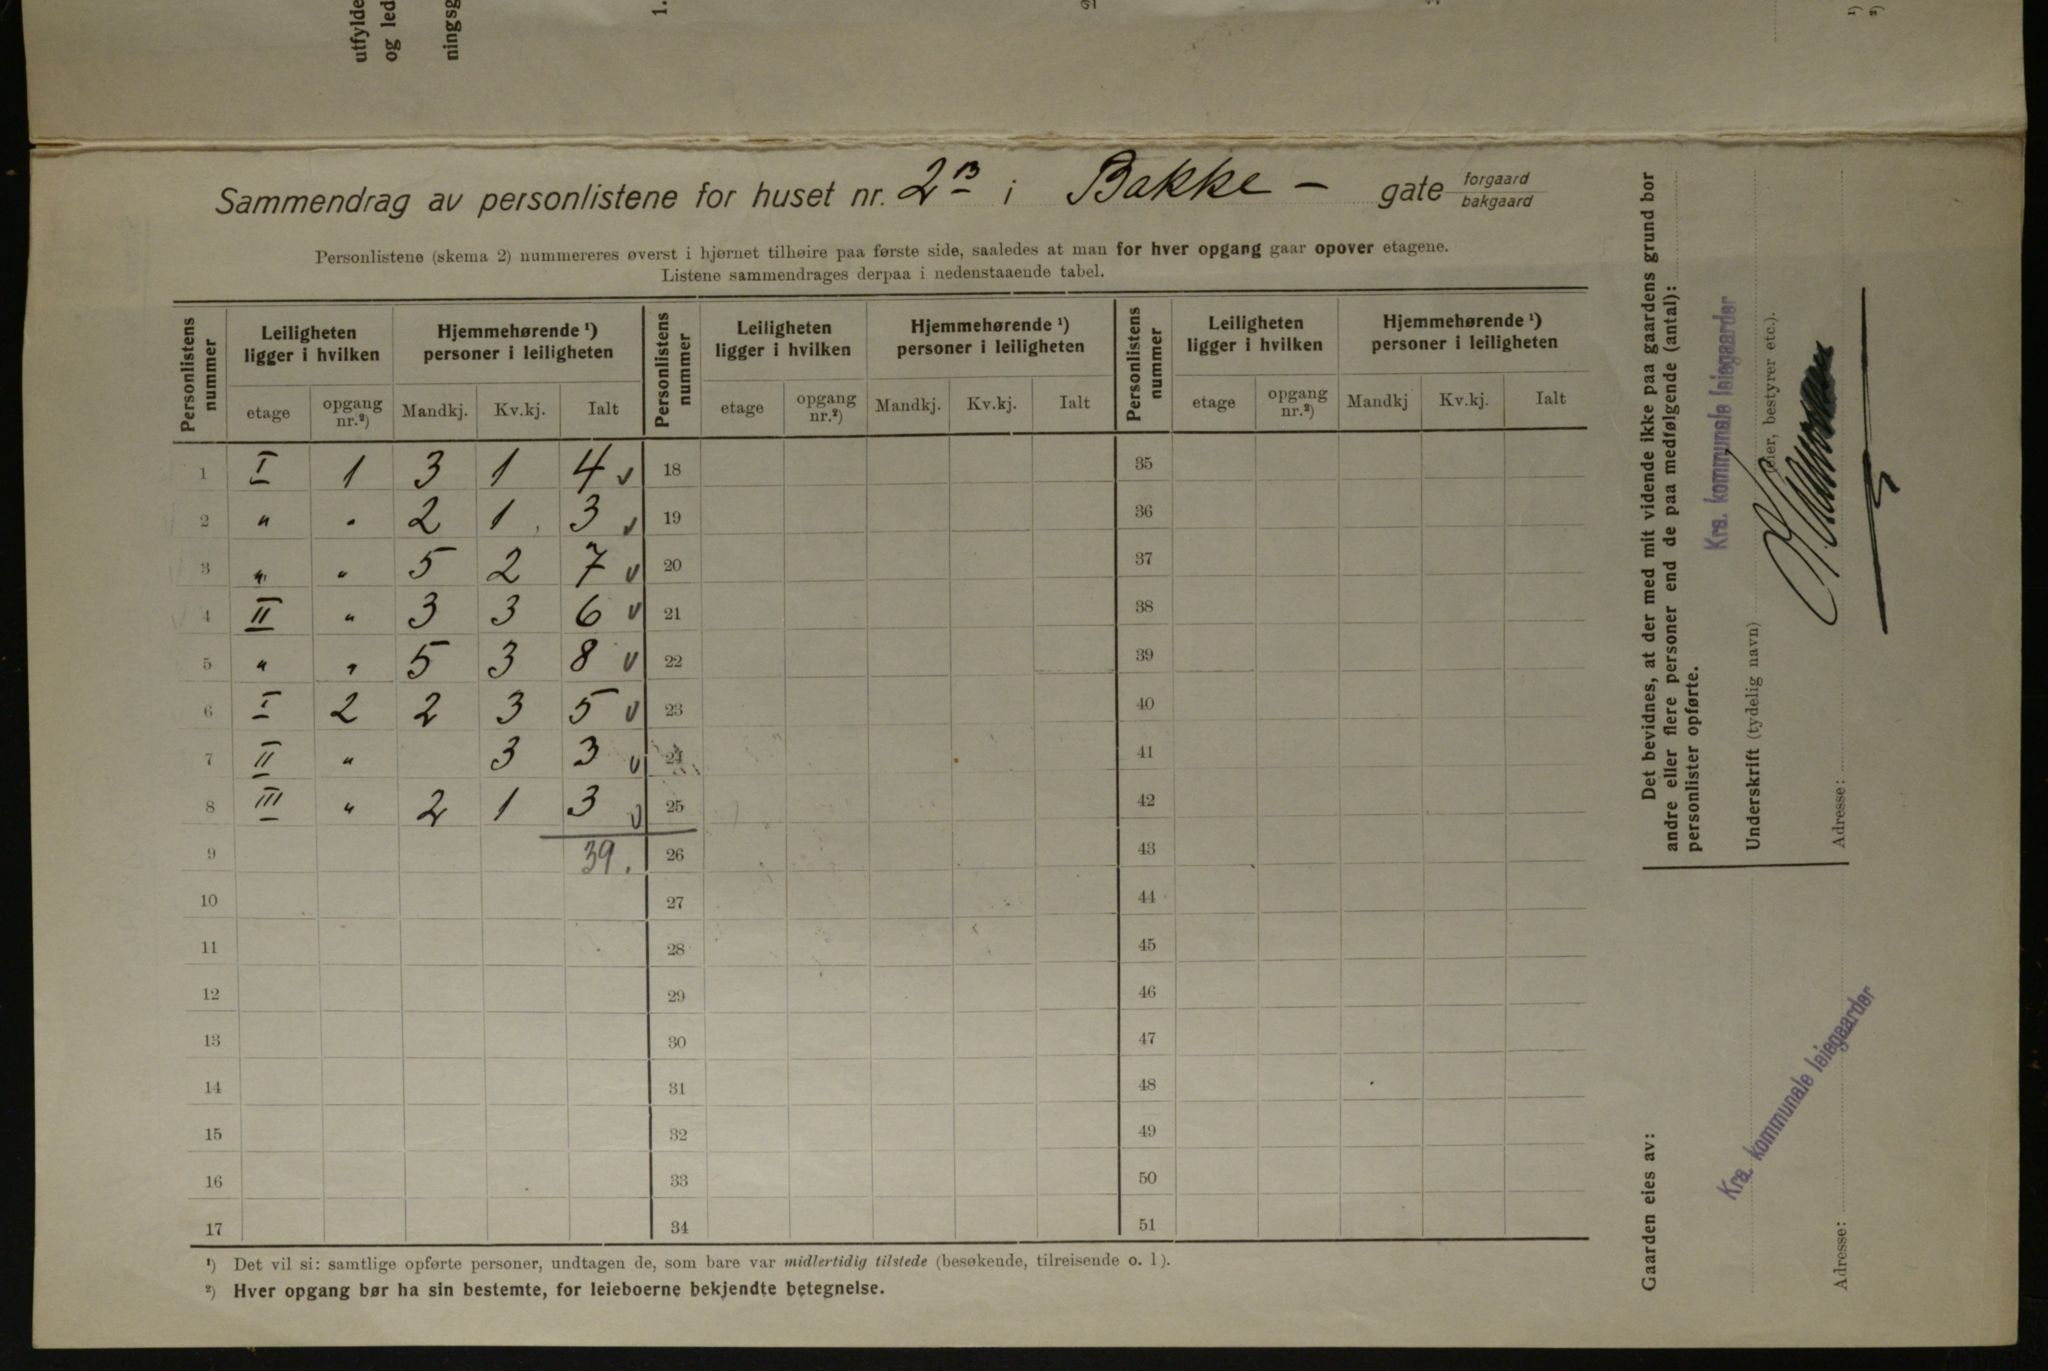 utfylde
og led
ningsg
1.
Sammendrag av personlistene for huset nr. 2B i Bakke - gate forgaard bakgaard
Personlistene (skema 2) nummereres øverst i hjørnet tilhøire paa første side, saaledes at man for hver opgang gaar opover etagene.
Listene sammendrages derpaa i nedenstaaende tabel.
Personlistens nummer | Leiligheten ligger i hvilken | Hjemmehørende ¹) personer i leiligheten | Personlistens nummer | Leiligheten ligger i hvilken | Hjemmehørende ¹) personer i leiligheten | Personlistens nummer | Leiligheten ligger i hvilken | Hjemmehørende ¹) personer i leiligheten
etage | opgang nr.²) | Mandkj. | Kv.kj. | Ialt | etage | opgang nr.²) | Mandkj. | Kv.kj. | Ialt | etage | opgang nr.²) | Mandkj | Kv.kj. | Ialt
1 I 1 3 1 4 ✓ 18 35
2 " " 2 1 3 ✓ 19 36
3 " " 5 2 7 ✓ 20 37
4 II " 3 3 6 ✓ 21 38
5 " " 5 3 8 ✓ 22 39
6 I 2 2 3 5 ✓ 23 40
7 II " 3 3 ✓ 24 41
8 III " 2 1 3 ✓ 25 42
9 39. 26 43
10 27 44
11 28 45
12 29 46
13 30 47
14 31 48
15 32 49
16 33 50
17 34 51
¹) Det vil si: samtlige opførte personer, undtagen de, som bare var midlertidig tilstede (besøkende, tilreisende o. l).
²) Hver opgang bør ha sin bestemte, for leieboerne bekjendte betegnelse.
Det bevidnes, at der med mit vidende ikke paa gaardens grund bor
andre eller flere personer end de paa medfølgende (antal):
personlister opførte.
Kra. kommunale leiegaarder
Underskrift (tydelig navn) (eier, bestyrer etc.).
Adresse:
Gaarden eies av:
Kra. kommunale leiegaarder
Adresse:
¹)
²)